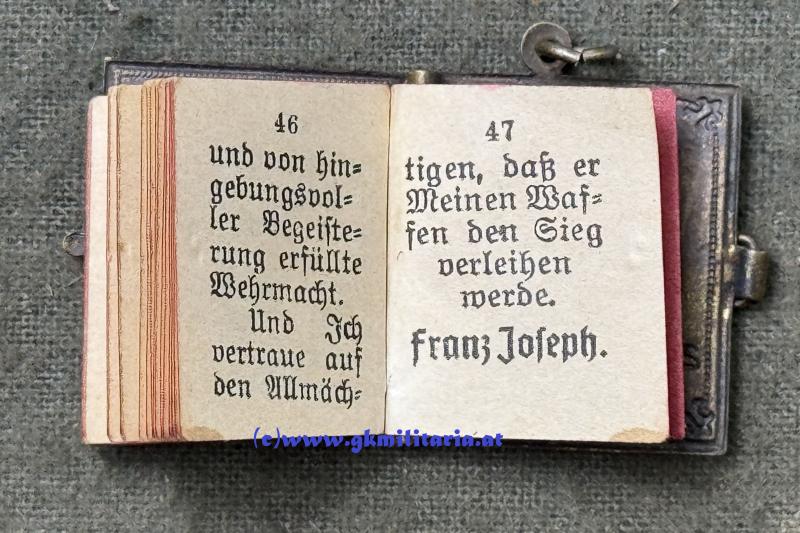 46
und von hin⸗
gebungsvol⸗
ler Begeiste⸗
rung erfüllte
Wehrmacht.
Und Ich
vertraue auf
den Allmäch⸗
47
tigen, daß er
Meinen Waf⸗
fen den Sieg
verleihen
werde.
Franz Joseph.
(c)www.gkmilitaria.at